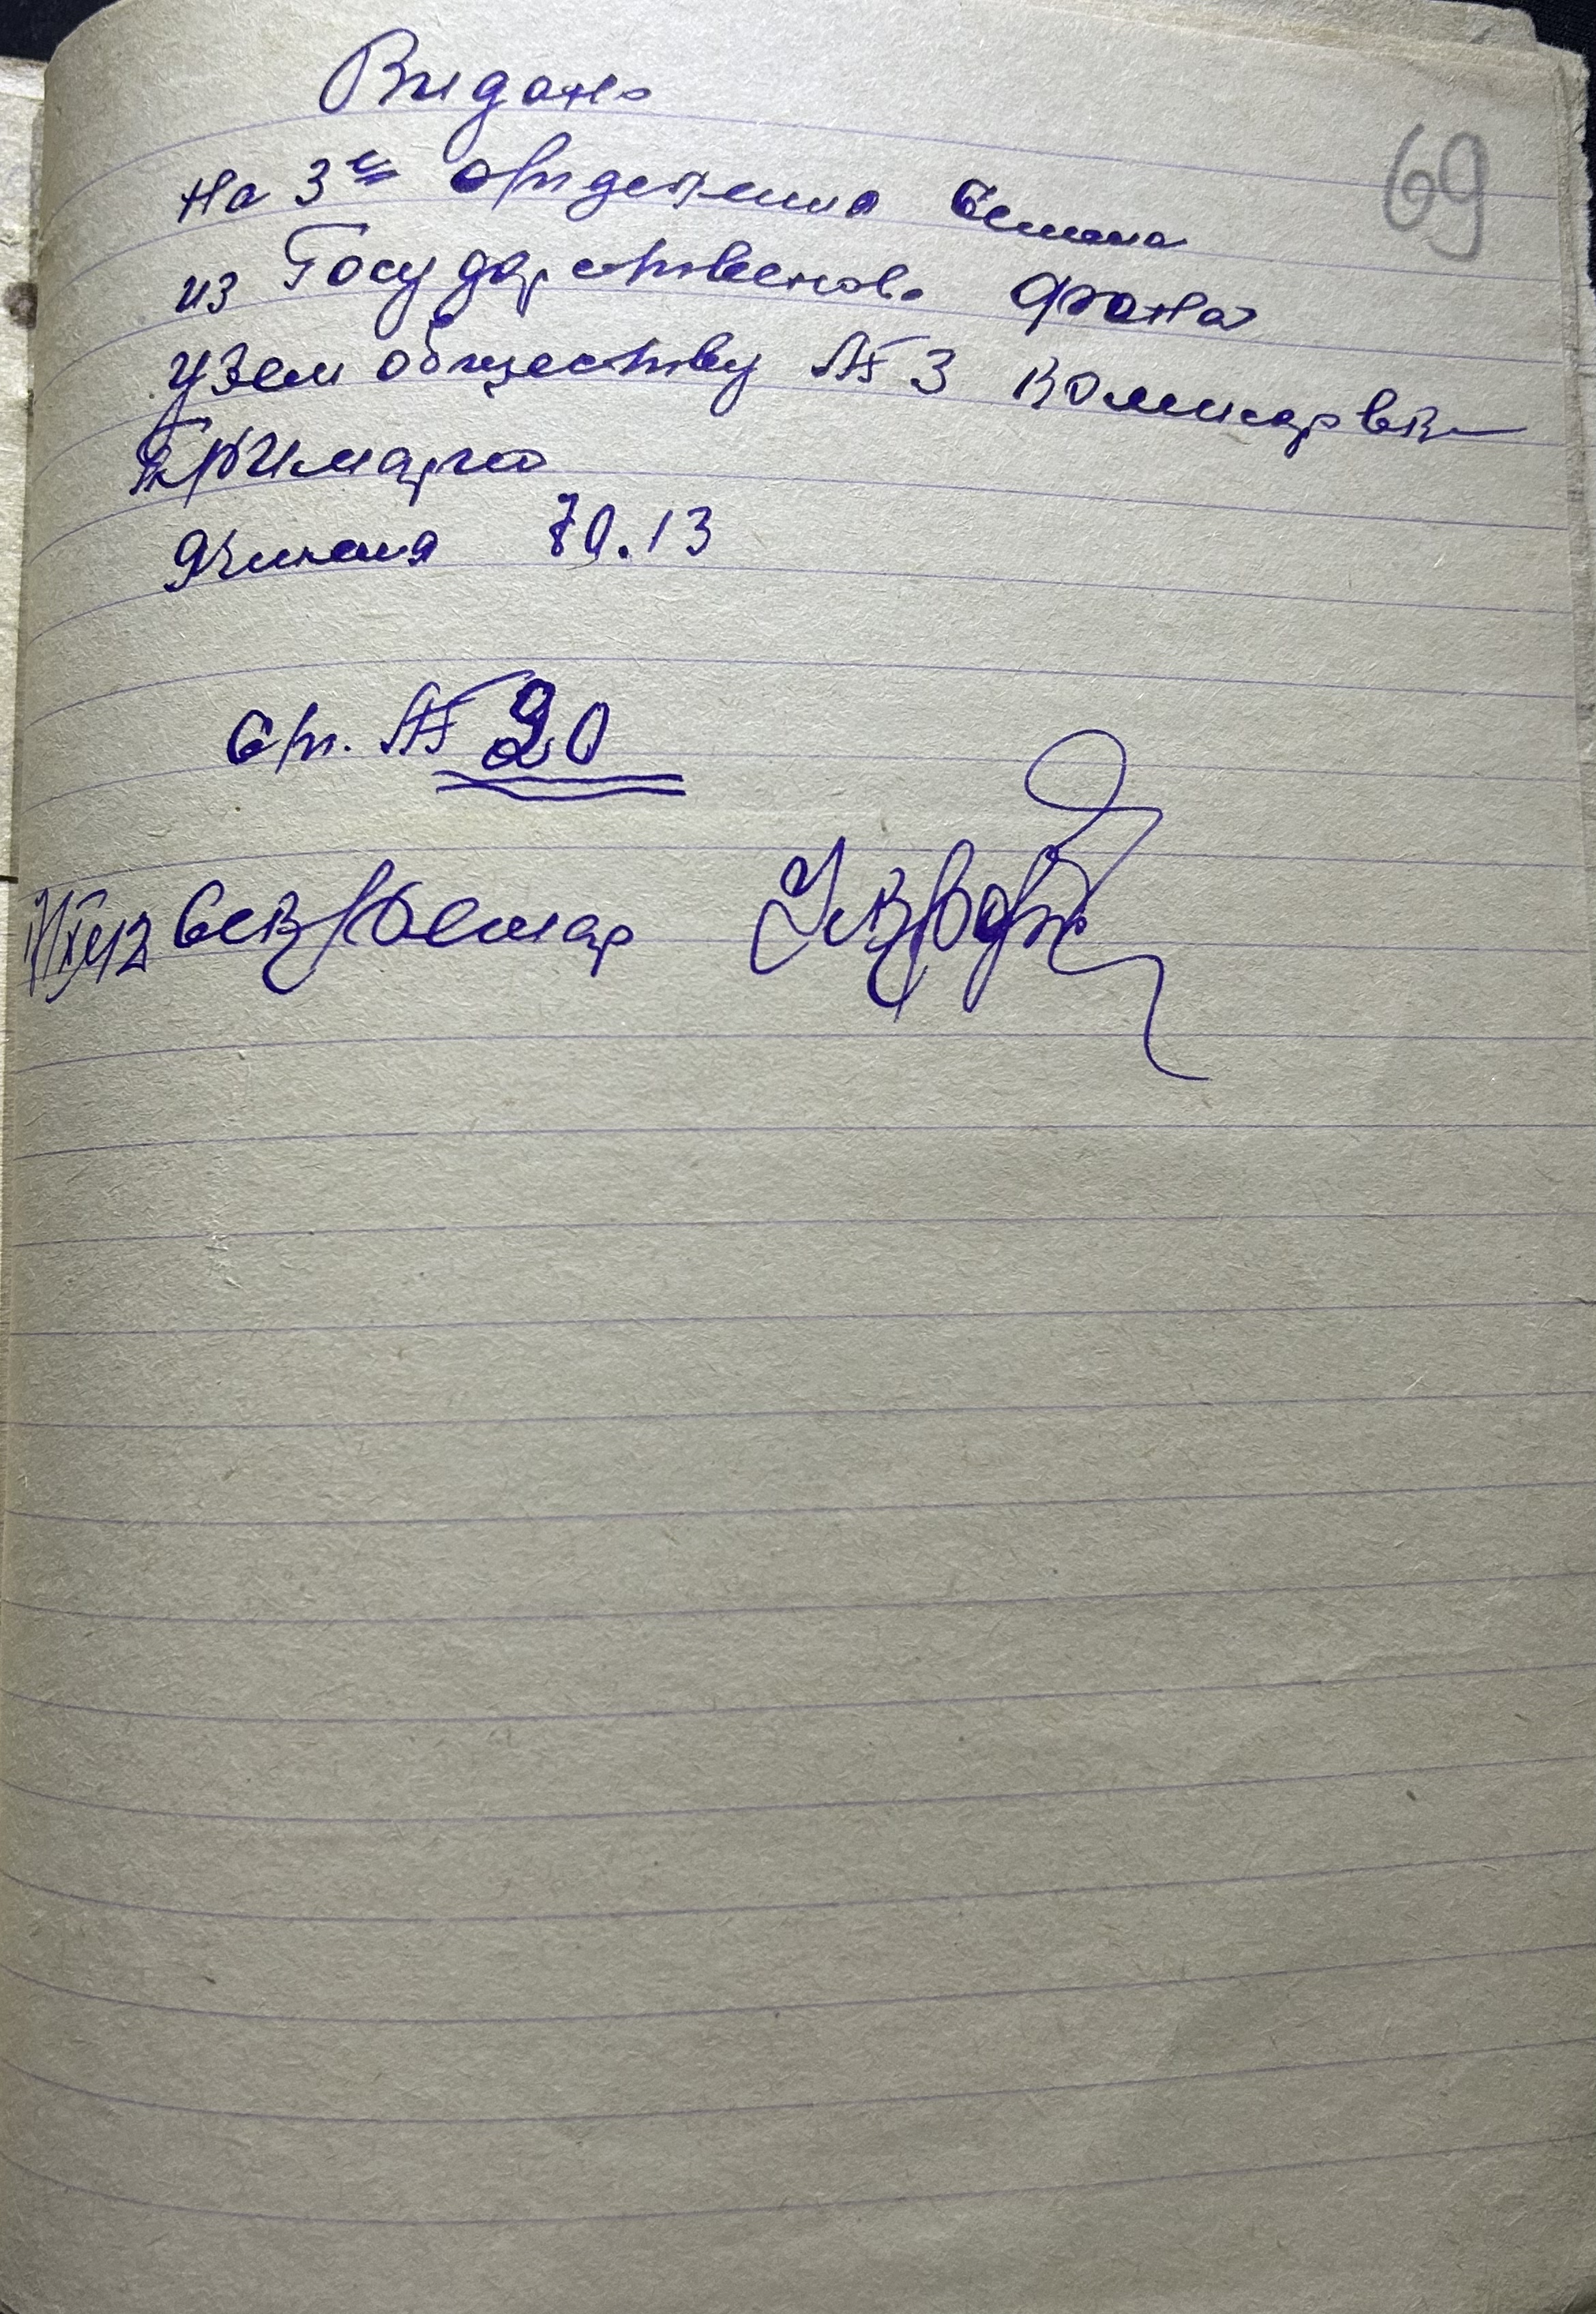 Видано
69
на 3е отделения Семена
из Государственово фона
узем обществу № 3 Комисарвк
Примарю
Ячменя 70.13
Ст. № 20
Секретар